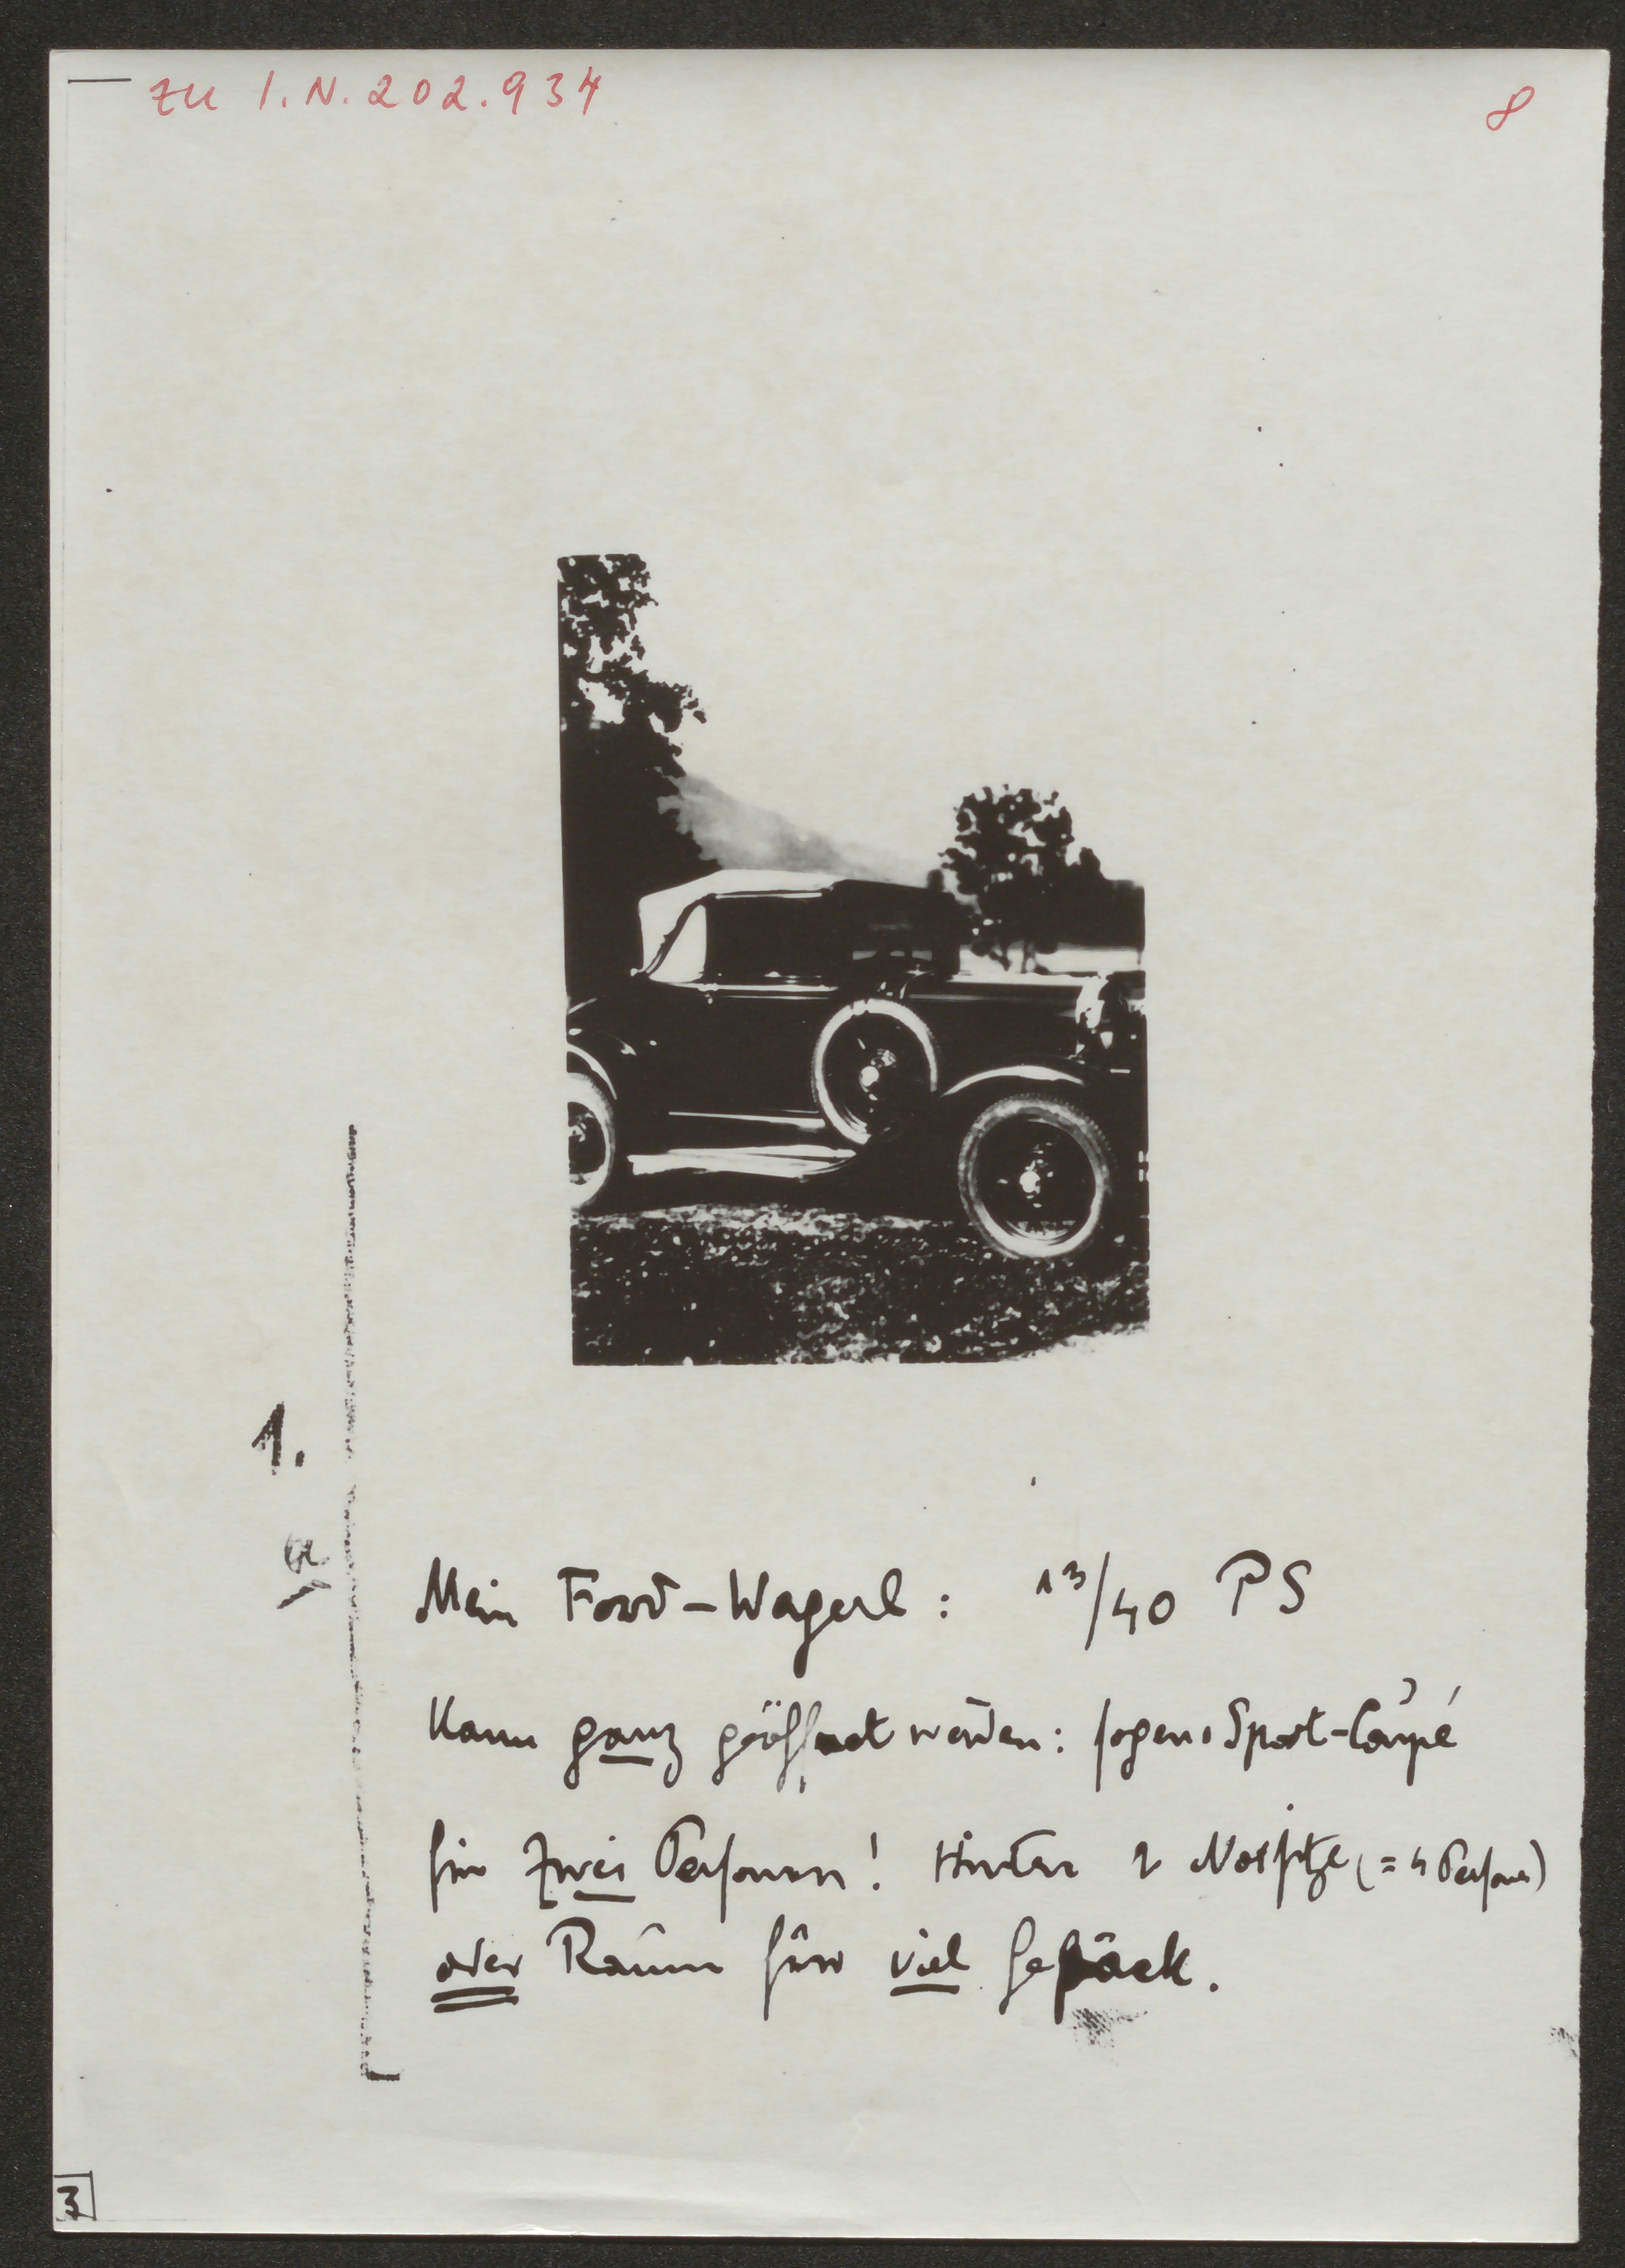 zu I.N. 202.934
8
1.
a
Mein Ford-Wagerl: 13/40 PS
Kann ganz geöffnet werden: sogen. Sport-Coupé
für zwei Personen! Hinten 2 Notsitze (= 4 Personen)
oder Raum für viel Gepäck.
3